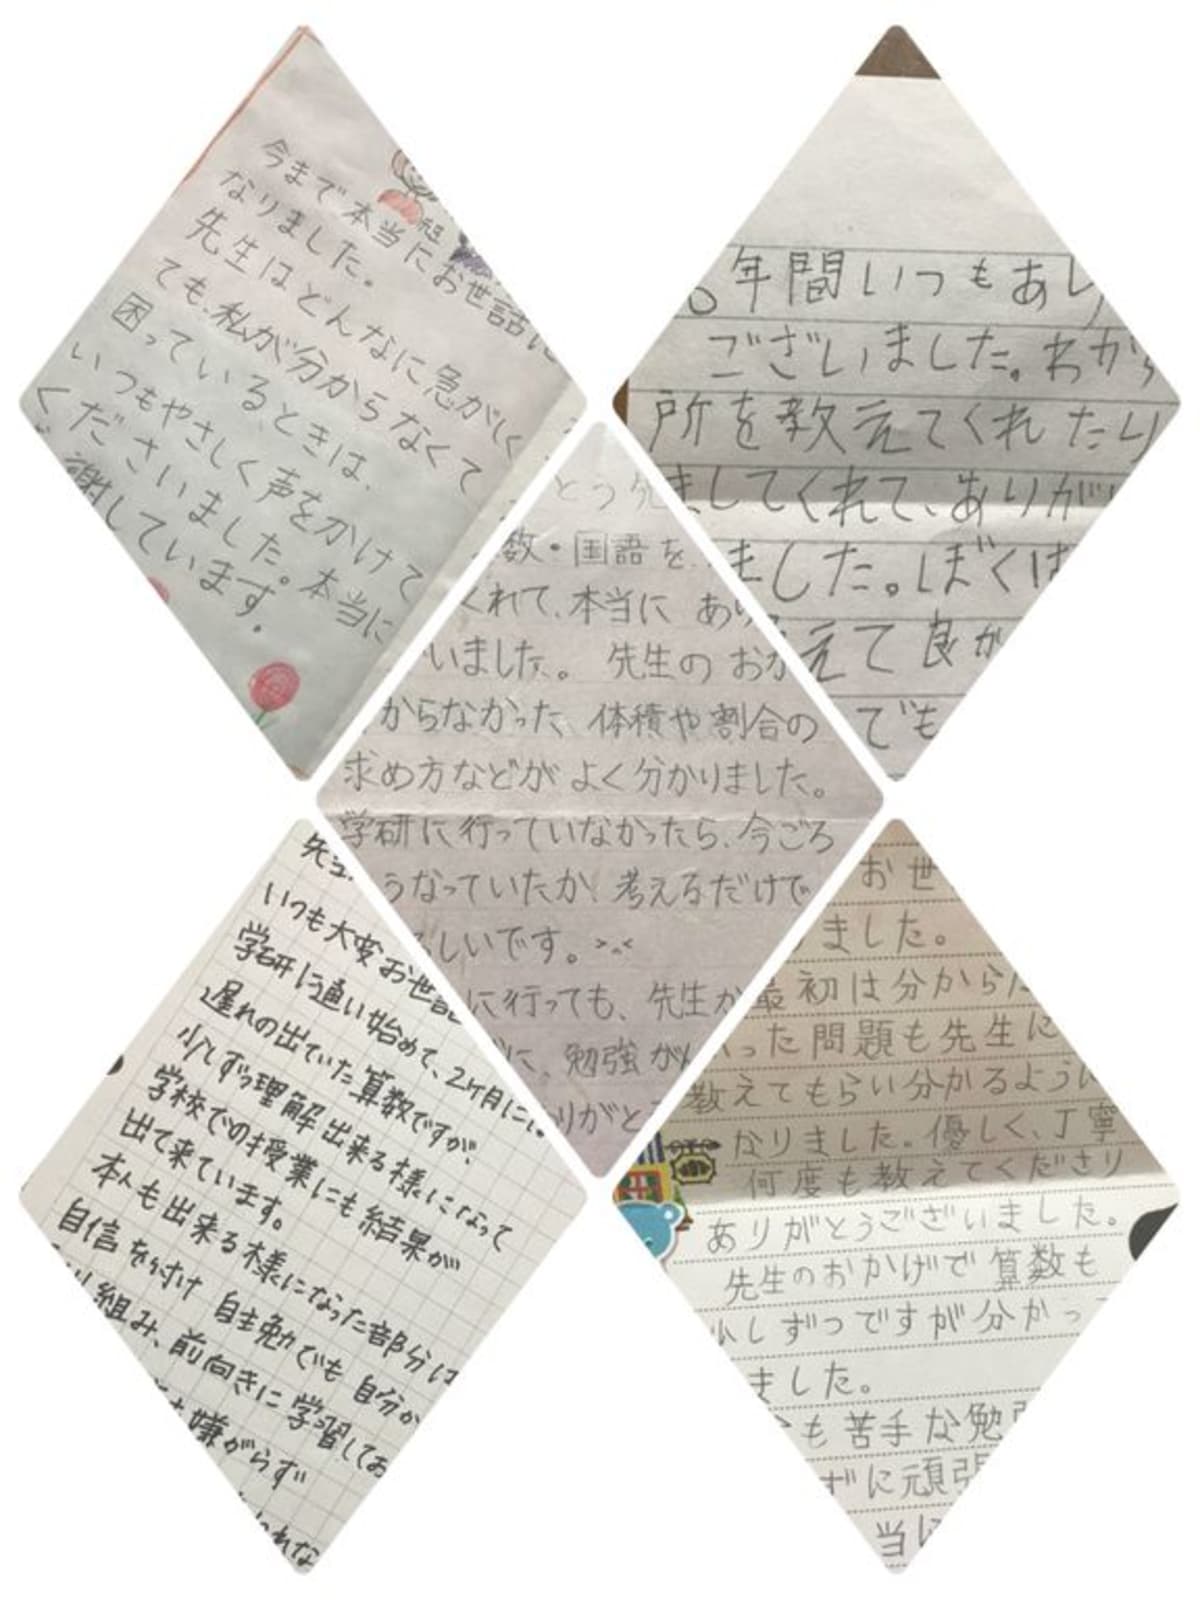 今まで本当にお世話に
なりました。
先生はどんなに急がしく
ても、私が分からなくて
困っているときは、
いつもやさしく声をかけて
くださいました。本当に
謝しています。
年間いつもあり
ございました。わから
所を教えてくれたり
ましてくれて、ありがり
ました。ぼくは
えて良か
でも
とう
数・国語を
くれて、本当に あり
いました。 先生の おか
からなかった、体積や割合の
求め方などが よく分かりました。
学研に行っていなかったら、今ごろ
うなっていたか、考えるだけで
しいです。>.<
に行っても、先生が
に、勉強 がん
りがと
先生
いつも大変お世話
学研に通い始めて、2ヶ月に
遅れの出ていた算数ですが、
少しずつ理解出来る様になって
学校での授業にも結果が
出て来ています。
本人も出来る様になった部分は
自信を付け 自主勉でも 自分か
り組み、前向きに学習してお
嫌がらず
お世
ました。
最初は分からな
った問題も先生に
教えてもらい分かるように
なりました。優しく、丁寧
何度も教えてくださり
ありがとうございました。
先生のおかげで算数も
少しずつですが分かっ
ました。
も苦手な勉強
ずに頑張
当に